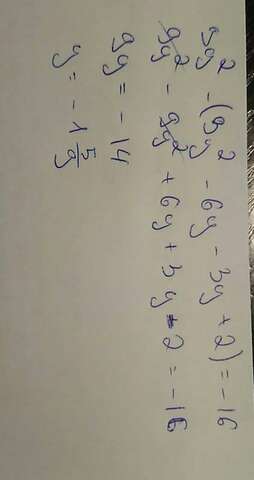 9y² - (9y² - 6y - 3y + 2) = -16
9y² - 9y² + 6y + 3y - 2 = -16
9y = -14
y = -1 5/9